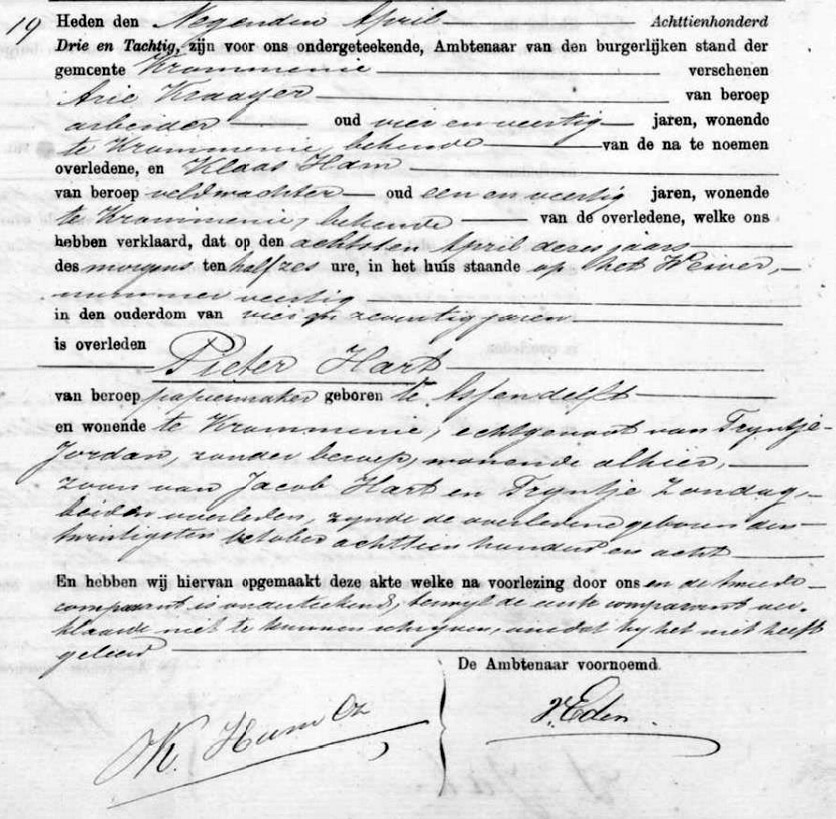 19 Heden den Negenden April Achttienhonderd
Drie en Tachtig, zijn voor ons ondergeteekende, Ambtenaar van den burgerlijken stand der
gemeente Krommenie verschenen
Arie Kraayer van beroep
arbeider oud vier en veertig jaren, wonende
te Krommenie, bekende van de na te noemen
overledene, en Klaas Ham
van beroep veldwachter oud een en veertig jaren, wonende
te Krommenie, bekende van de overledene, welke ons
hebben verklaard, dat op den achtsten April dezes jaars
des morgens ten half zes ure, in het huis staande op het Weiver,
nummer veertig
in den ouderdom van vier en zeventig jaren
is overleden
Pieter Hart
van beroep papiermaker geboren te Assendelft
en wonende te Krommenie, echtgenoot van Tryntje
Jordan, zonder beroep, wonende alhier,
zoon van Jacob Hart en Tryntje Zondag,
beiden overleden, zynde de overledene geboren den
twintigsten October achttien honderd en acht
En hebben wij hiervan opgemaakt deze akte welke na voorlezing door ons en de tweede
comparant is onderteekend, terwyl de eerste comparant ver-
klaarde niet te kunnen schryven, omdat hy het niet heeft
geleerd
De Ambtenaar voornoemd.
K. Ham Cz
J. Eden